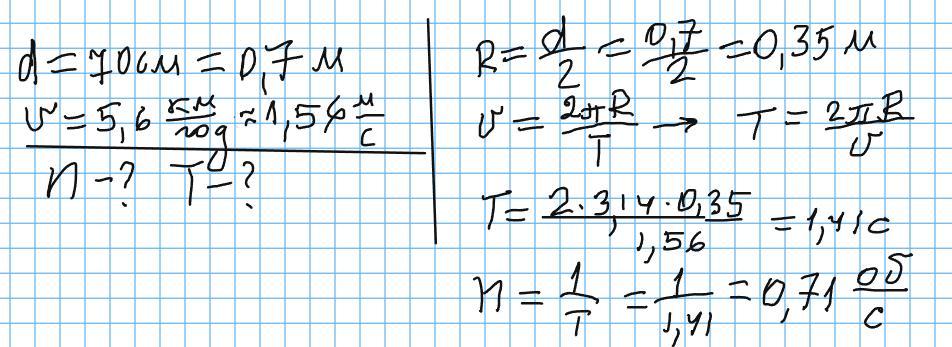 d = 70 см = 0,7 м
v = 5,6 км/год ≈ 1,56 м/с
n - ? T - ?
R = d/2 = 0,7/2 = 0,35 м
v = 2πR/T → T = 2πR/v
T = 2·3,14·0,35/1,56 = 1,41 с
n = 1/T = 1/1,41 = 0,71 об/с